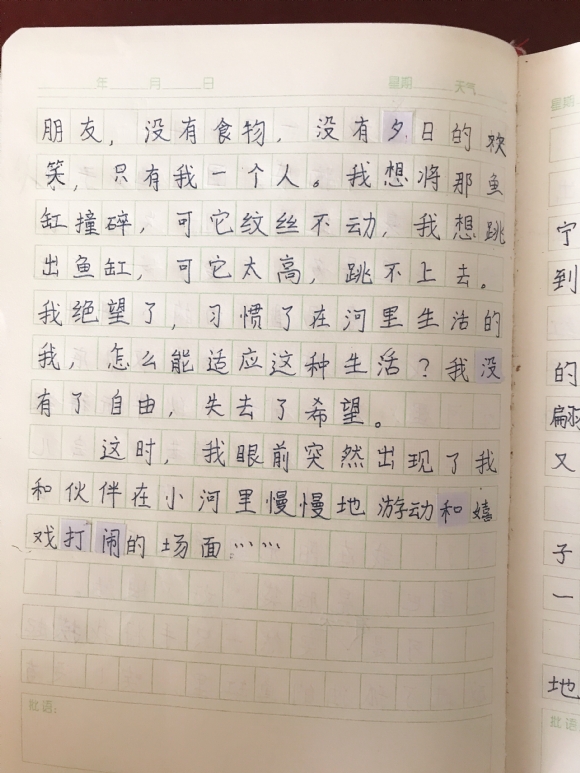 年 月 日 星期 天气
朋友，没有食物，没有夕日的欢
笑，只有我一个人。我想将那鱼
缸撞碎，可它纹丝不动，我想跳
出鱼缸，可它太高，跳不上去。
我绝望了，习惯了在河里生活的
我，怎么能适应这种生活？我没
有了自由，失去了希望。
这时，我眼前突然出现了我
和伙伴在小河里慢慢地游动和嬉
戏打闹的场面……
批语：
星期
宁
到
的
翩
又
子
一
地
批语